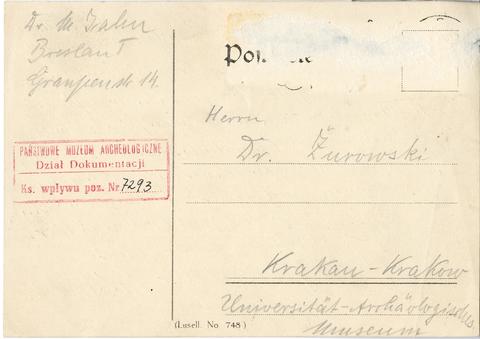 Dr. M. Jahn
Breslau I
Graupenstr 14.
PAŃSTWOWE MUZEUM ARCHEOLOGICZNE
Dział Dokumentacji
Ks. wpływu poz. Nr 7293
Herrn
Dr. Żurowski
Krakau-Krakow
Universität-Archäologisches
Museum
(Lusell. No. 748)